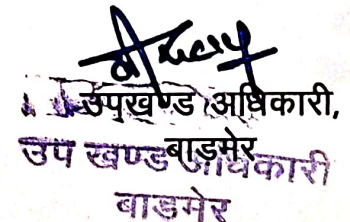 उपखण्ड अधिकारी,
बाड़मेर
उप खण्ड अधिकारी
बाडमेर